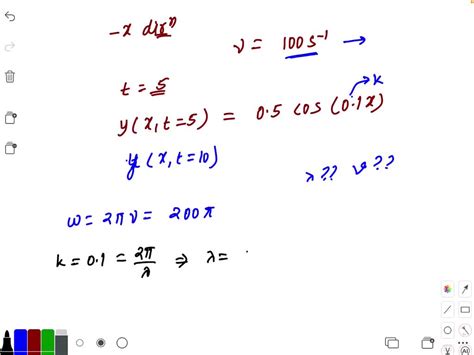 -x dirⁿ
ν = 100 s⁻¹ →
t = 5
y(x, t=5) = 0.5 cos(0.1x)
k
y(x, t=10)
λ?? v??
ω = 2πν = 200π
k = 0.1 = 2π/λ ⇒ λ =